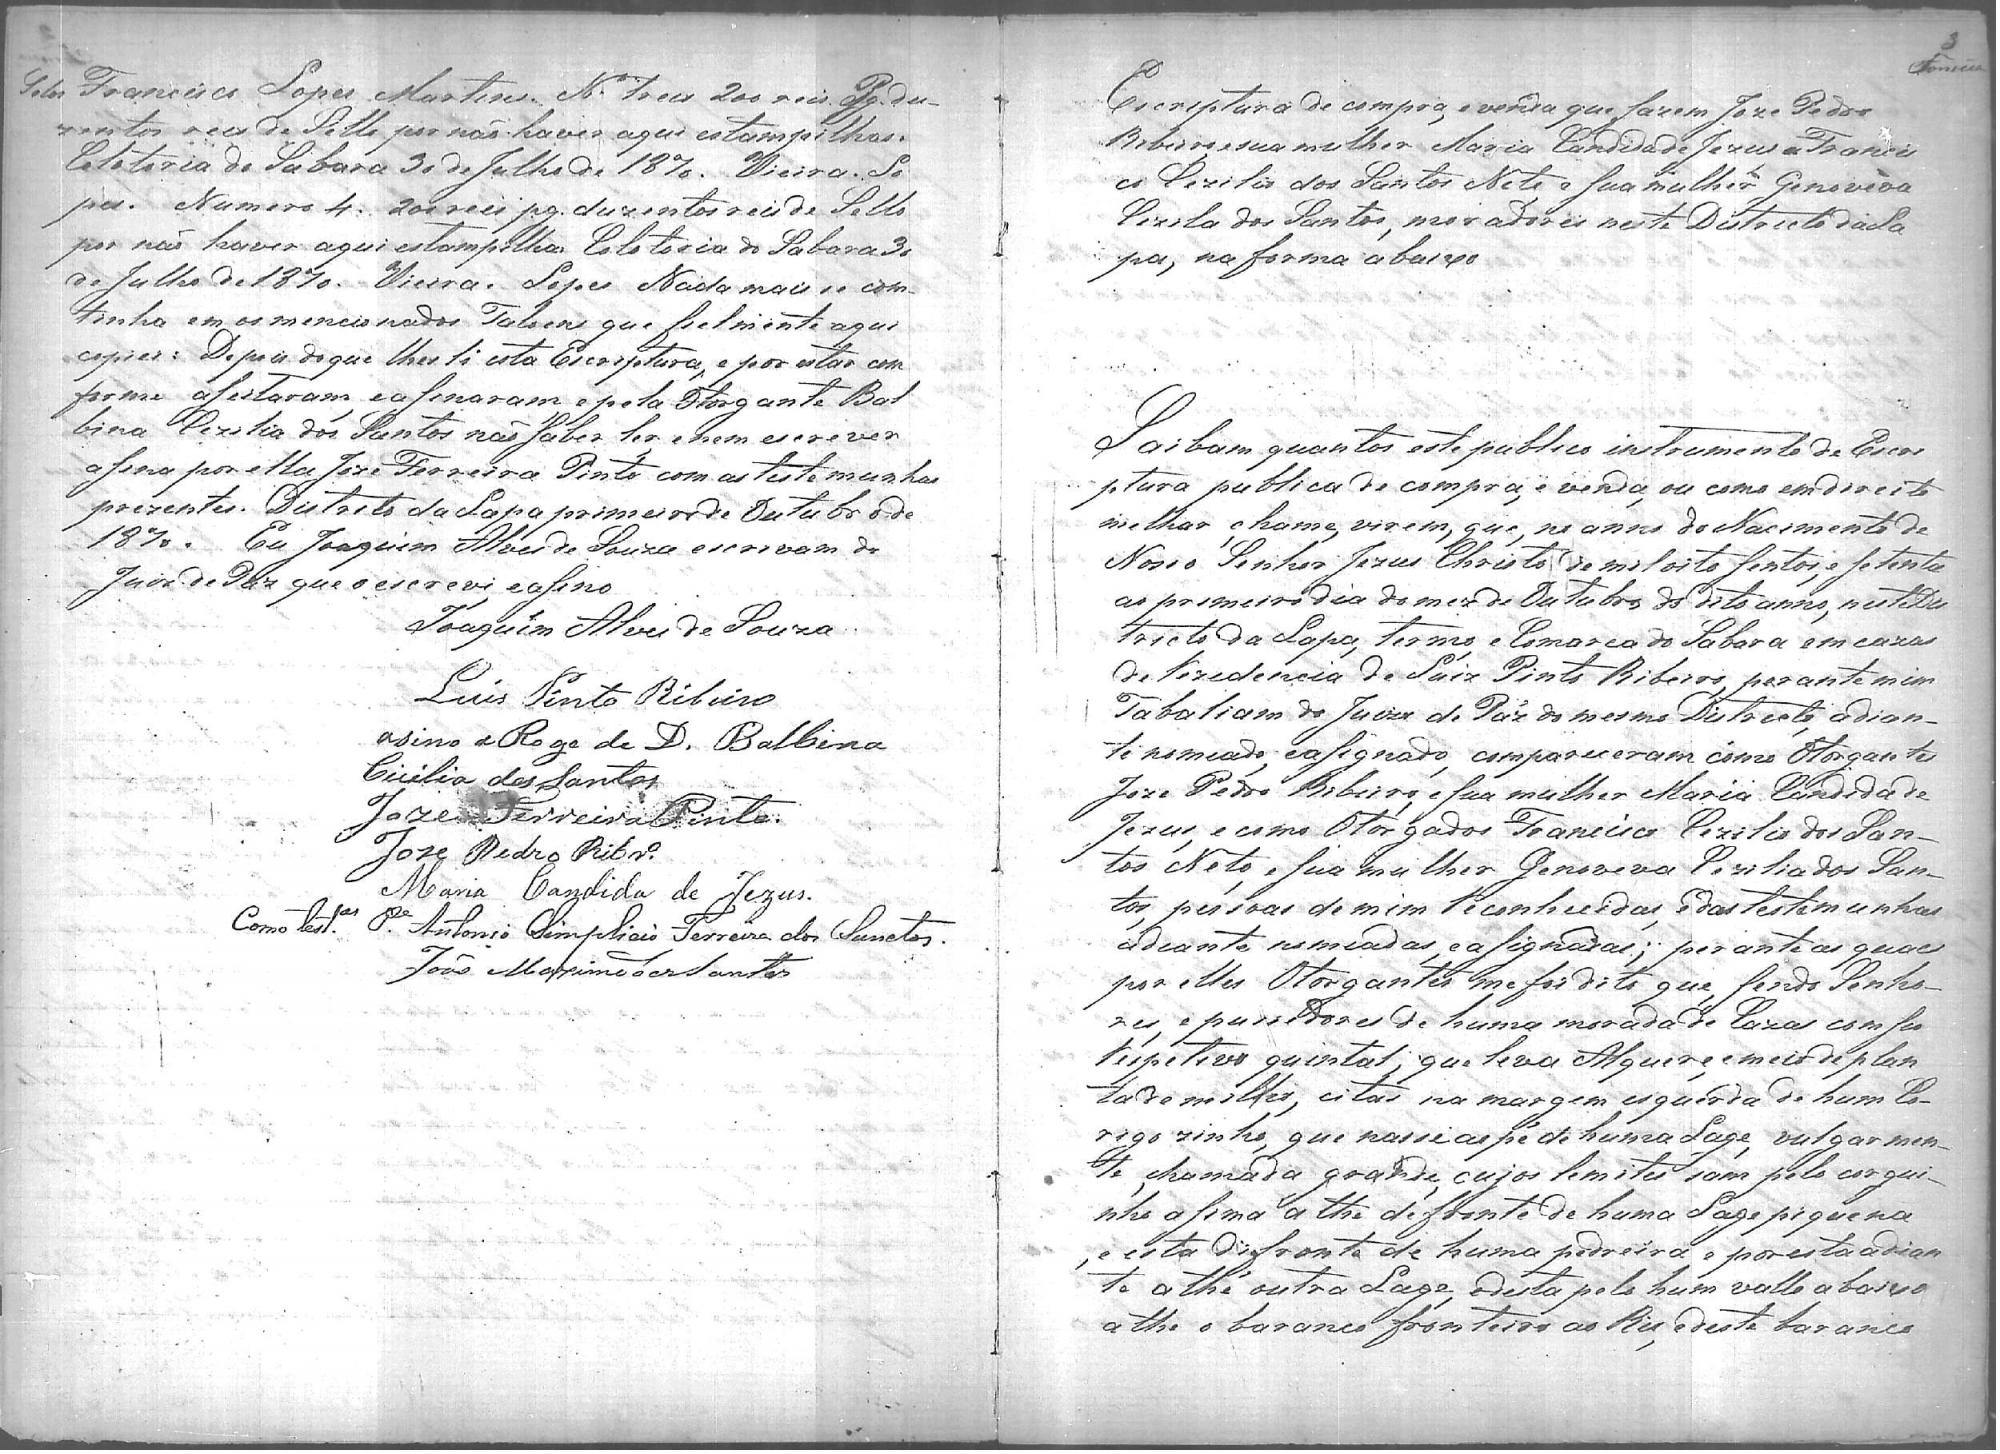 Sellos Francisco Lopes Martins. Nº treis 200 reis. Pg. du-
zentos reis de Sello por não haver aqui estampilhas.
Coletoria do Sabara 30 de Julho de 1870. Vieira. Lo
pes. Numero 4. 200 reis pg. duzentos reis de Sello
por não haver aqui estampilha Coletoria do Sabara 30
de Julho de 1870. Vieira. Lopes Nada mais se con-
tinha em os mencionados Taloens que fielmente aqui
copiei: Depois do que lhes li esta Escriptura, e por estar con
forme aseitaram, e asinaram e pela Otorgante Bal
bina Cezilia dos Santos não saber ler, e nem escrever
asina por ella Joze Ferreira Pinto com as testemunhas
prezentes. Distrito da Lapa primeiro de Outubro de
1870. Eu Joaquim Alves de Souza escrivam do
Juiz de Paz que o escrevi, e asino
Joaquim Alves de Souza
Luis Pinto Ribeiro
asino a Rogo de D. Balbina
Cicilia dos Santos
Joze Ferreira Pinto.
Joze Pedro Ribrº.
Maria Candida de Jezus.
Como test.as P.e Antonio Simplicio Ferreira dos Sanctos.
João Maximo dos Santos
3
Escriptura de compra, e venda que fazem Joze Pedro
Ribeiro e sua mulher Maria Candida de Jezus a Francis
co Cezilio dos Santos Neto e sua mulher Genoveva
Cezila dos Santos, moradores neste Districto da La
pa, na forma abaixo
Saibam quantos este publico instrumento de Escri
ptura publica de compra, e venda, ou como em direito
milhor, chame, virem, que, no anno do Nacimento de
Nosso Senhor Jezus Christo de mil oito sentos, e setenta
ao primeiro dia do mez de Outubro, do dito anno, neste Dis
tricto da Lapa, termo, e Comarca do Sabara em cazas
de rezedencia de Luiz Pinto Ribeiro, perante mim
Tabaliam do Juizo de Páz do mesmo Districto, adian-
te nomeado, e asignado, compareceram como Otorgantes
Joze Pedro Ribeiro, e sua mulher Maria Candida de
Jezus, e como Otorgados Francisco Cezilio dos San-
tos Neto, e sua mulher Genoveva Cezilia dos San-
tos, pessoas de mim reconhecidas, e das testemunhas
adeante nomeadas, e asignadas; perante as quaes
por elles Otorgantes me foi dito que, sendo Senho-
res, e pussuidores de huma morada de Cazas com seu
respetivo quintal, que leva Alquere, e meio de plan
ta de milho, citas na margem esquerda de hum Co-
rigozinho, que nasse ao pé de huma Lage, vulgarmen-
te, chamada grande, cujos lemites sam pelo corgui-
nho asima athe defronte de huma Lage piquena
, e esta defronte de huma pedreira e por esta adian
te athé outra Lage, e desta pelo hum vallo abaixo
athe o baranco fronteiro ao Rio, e deste baranco